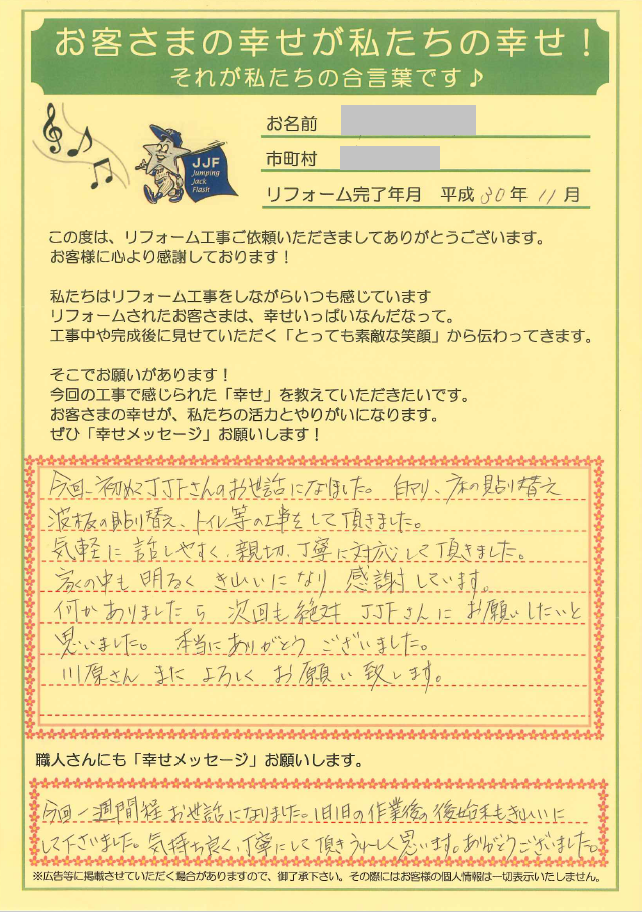 お客さまの幸せが私たちの幸せ！
それが私たちの合言葉です♪
JJF
Jumping
Jack
Flash
お名前
市町村
リフォーム完了年月 平成30年11月
この度は、リフォーム工事ご依頼いただきましてありがとうございます。
お客様に心より感謝しております！
私たちはリフォーム工事をしながらいつも感じています
リフォームされたお客さまは、幸せいっぱいなんだなって。
工事中や完成後に見せていただく「とっても素敵な笑顔」から伝わってきます。
そこでお願いがあります！
今回の工事で感じられた「幸せ」を教えていただきたいです。
お客さまの幸せが、私たちの活力とやりがいになります。
ぜひ「幸せメッセージ」お願いします！
今回、初めてJJFさんのお世話になりました。 床の貼り替え
波板の貼り替え、トイレ等の工事をして頂きました。
気軽に話しやすく、親切、丁寧に対応して頂きました。
家の中も明るくきれいになり感謝しています。
何かありましたら次回も絶対JJFさんにお願いしたいと
思いました。本当にありがとうございました。
川原さんまたよろしくお願い致します。
職人さんにも「幸せメッセージ」お願いします。
今回一週間程お世話になりました。1日1日の作業後の後始末もきれいに
して下さいました。気持ち良く、丁寧にして頂きうれしく思います。ありがとうございました。
※広告等に掲載させていただく場合がありますので、御了承下さい。その際にはお客様の個人情報は一切表示いたしません。